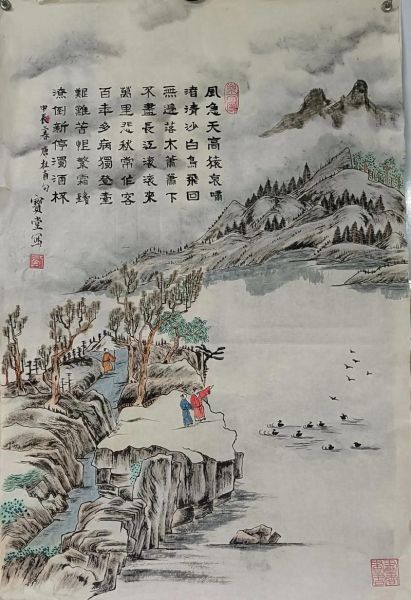 風急天高猿哀嘯
渚清沙白鳥飛回
無邊落木蕭蕭下
不盡長江滾滾來
萬里悲秋常作客
百年多病獨登臺
艱難苦恨繁霜鬢
潦倒新停濁酒杯
甲辰春唐杜甫句
寶堂寫